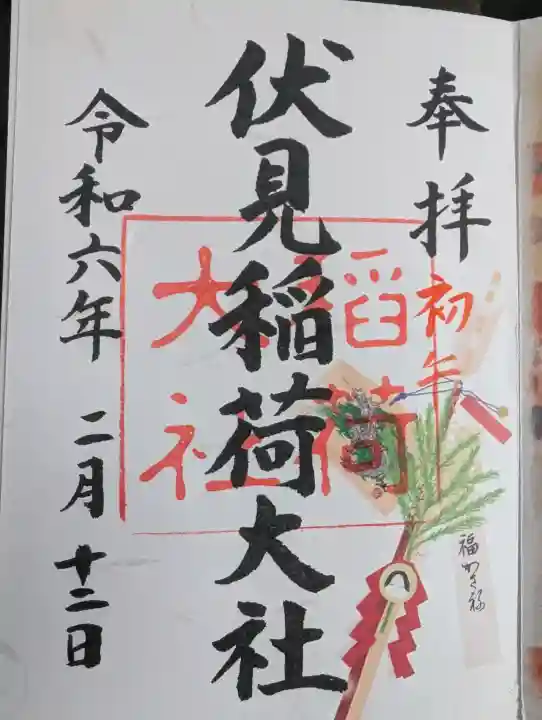 奉拝
初午
伏見稲荷大社
稲荷
大社
令和六年 二月 十二日